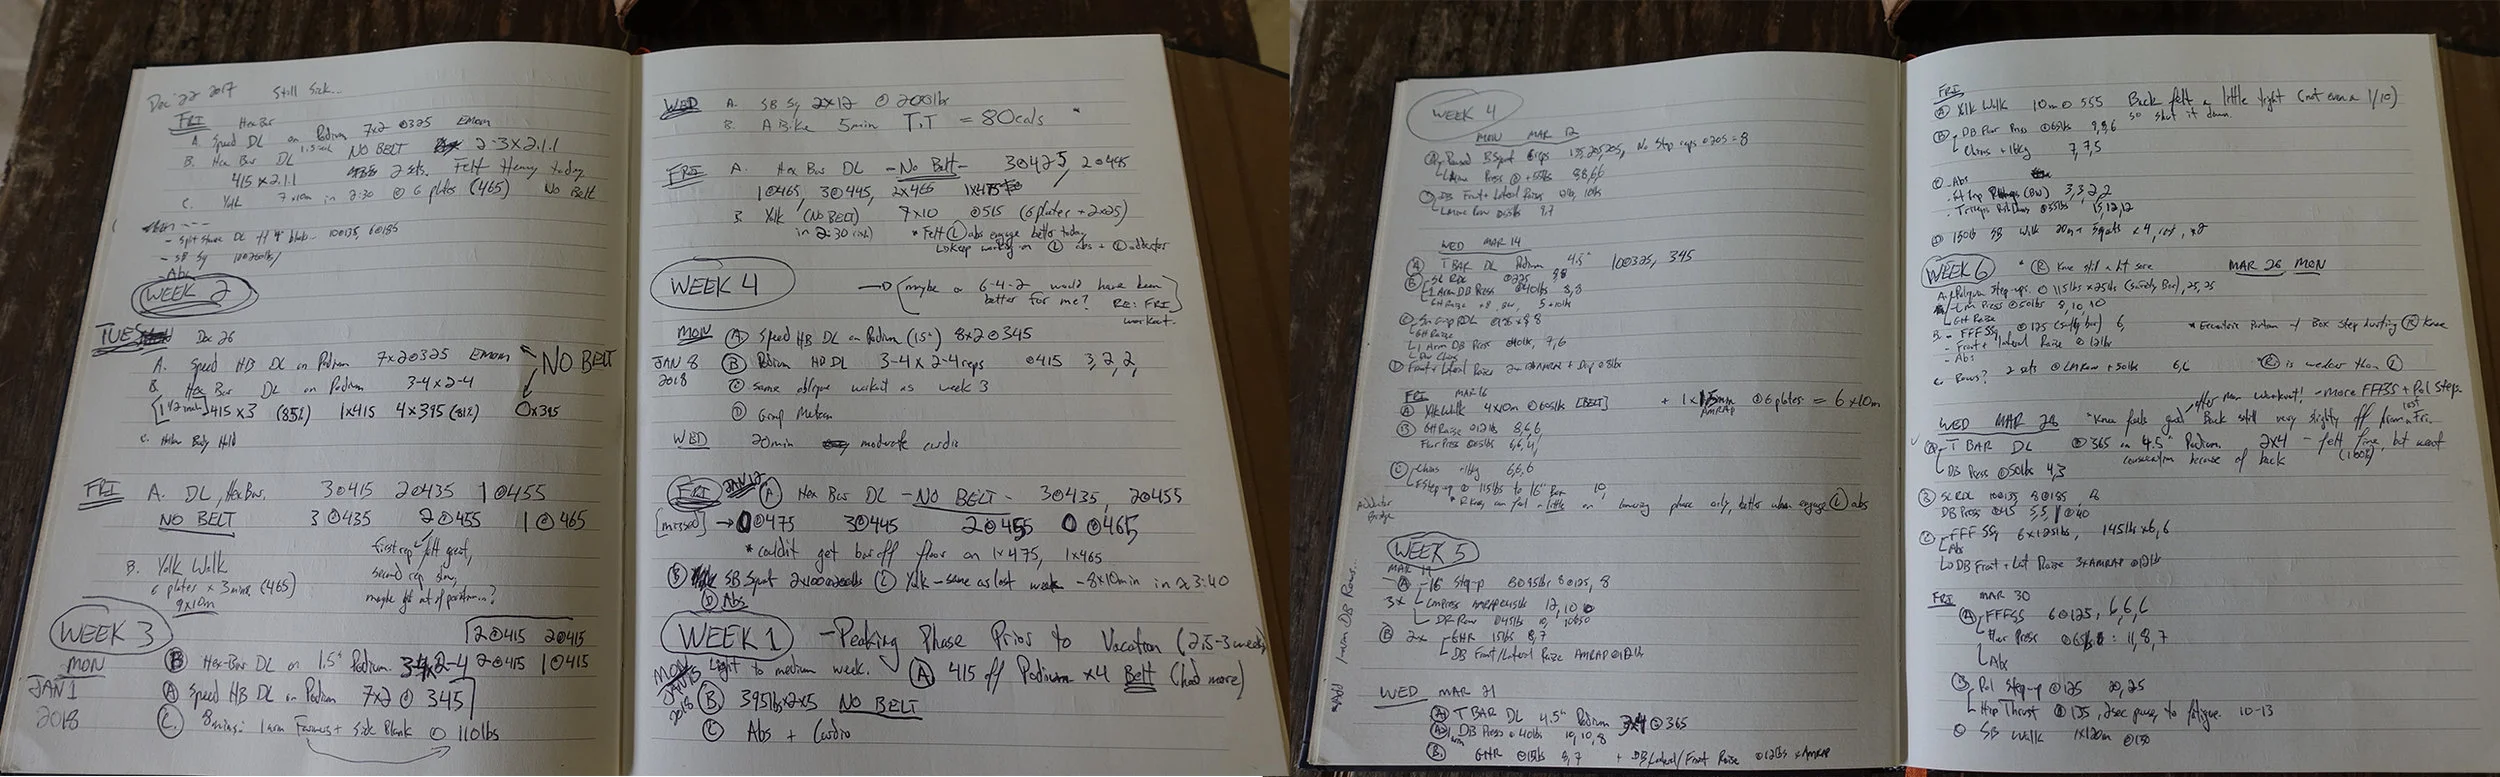 Dec 22 2017 Still Sick...
FRI Hex Bar
A. Speed DL on Podium 7x2 @325 EMOM
1.5 inch
B. Hex Bar DL NO BELT 2-3x2.1.1
415x2.1.1 2 sets. Felt Heavy today
C. Yolk 7x10m in 2:30 @ 6 plates (465) No Belt
- Split Stance DL 10@135, 6@185
- SB Sq
- Abs
WEEK 2
TUES Dec 26
A. Speed HB DL on Podium 7x2@325 EMOM NO BELT
B. Hex Bar DL on Podium 3-4x2-4
[1 1/2 inch] 415x3 (85%) 1x415 4x395 (81%) 0x395
C. Body Hold
FRI A. DL, Hex Bar. 3@415 2@435 1@455
NO BELT 3@435 2@455 1@465
first rep felt great,
second rep slow,
maybe bit out of position?
B. Yolk Walk
6 plates x 3mins (465)
9x10m
WEEK 3
2@415 2@415
MON B Hex-Bar DL on 1.5" Podium 3-4x2-4 2@415 1@415
JAN 1 A Speed HB DL on Podium 7x2 @ 345
2018 C. 8mins: 1 arm Farmers + Side Plank @ 110lbs
WED A. SB Sq 2x12 @ 200lbs
B. A Bike 5min T.T = 80cals
FRI A. Hex Bar DL - No Belt - 3@425, 2@445
1@465, 3@445, 2x465 1x475
B. Yolk (NO BELT) 7x10 @515 (6 plates + 2x25)
in 2:30 * Felt (L) abs engage better today
Keep working on (L) abs + (L) adductor
WEEK 4 (maybe a 6-4-2 would have been
better for me? RE: FRI
workout.
MON A Speed HB DL on Podium (1.5") 8x2@345
JAN 8 B Podium HB DL 3-4x2-4reps @415 3,2,2,
2018 C Same oblique workout as week 3
D Grip Medium
WED 20min moderate cardio
FRI JAN 12 A Hex Bar DL - NO BELT - 3@435, 2@455
[missed] → 0@475 3@445 2@455 0@465
* couldn't get bar off floor on 1x475, 1x465
B SB Squat 2x10@200lbs C Yolk - same as last week - 8x10min in 3:40
D Abs
WEEK 1 - Peaking Phase Prior to Vacation (2.5-3 weeks)
MON Light to medium week. A 415 off Podium x4 Belt (had more)
JAN 15
2018 B 395lbsx2x5 NO BELT
C Abs + Cardio
WEEK 4
MON MAR 12
A Paused B Squat 6reps 135,205,205, No Stop reps @205=8
LMine Press @ +55lbs 8,8,6,6
Front + Lateral Raises 10lbs
LMine Row @55lbs 9,7
WED MAR 14
A T BAR DL Podium 4.5" 10@325, 345
B SL RDL @225 8,8
1 Arm DB Press @40lbs 8,8
GH Raise +8 BW, 5+10lbs
C Sn Grip RDL
GH Raise
1 Arm DB Press @40lbs 7,6
Chins
D Front + Lateral Raises @8lbs
FRI MAR 16
A Yolk Walk 4x10m @605lbs [BELT] + 1x AMRAP @6plates = 6x10m
B GH Raise @12lbs 8,6,6
Floor Press @65lbs 6,6,4,
C Chins +16kg 6,6,6
FStep-up @ 115lbs to 16" Box 10,
* R Knee can feel a little on lowering phase only, better when engage (L) abs
Adductor
Bridge
WEEK 5
MAR 19
A 16" Step-up 8@95lbs 8@125, 8
3x LMpress AMRAP@45lbs 12,10
DB Row @45lbs 10,
B 2x GHR 15lbs 8,7
DB Front/Lateral Raise AMRAP@12lb
*Add 1-arm DB Rows...
WED MAR 21
A T BAR DL 4.5" Podium 3x4@365
A 1arm DB Press @40lbs 10,10,8
B. GHR @15lbs 8,7 + DB Lateral/Front Raise @12lbs xAMRAP
FRI
A Yolk Walk 10m@555 Back felt a little tight (not even a 1/10)
so shut it down.
B DB Floor Press @65lbs 9,8,6
Chins +16kg 7,7,5
C Abs
(BW) 3,3,2,2
Triceps @55lbs 15,12,12
D 150lb SB Walk 20m+ 3 squats x4, rest, x2
WEEK 6 * (R) Knee still a bit sore MAR 26 MON
A. Poliquin Step-ups @115lbs x25lbs (Safety Bar), 25, 25
LM Press @50lbs 8,10,10
GH Raise
B. FFFSSq @125 (safety bar) 6, * Eccentric Portion of Box Step hurting (R) Knee
- Front + lateral Raise @12lb
- Abs
C. Rows? 2 sets @LMRow +50lbs 6,6 * (R) is weaker than (L)
after Mon workout! - more FFFSS + Pol Steps
WED MAR 28 *Knee feels good, Back still very slightly off from last Fri.
A T BAR DL @365 on 4.5" Podium 2x4 - felt fine, but went
conservative because of back
DB Press @50lbs 4,3
B SL RDL 10@135 8@185, 8
DB Press @45 5,5, @40
C FFFSSq 6x125lbs, 145lbs x6,6
Abs
DB Front + Lat Raise 3xAMRAP @12lb
FRI MAR 30
A FFFSS 6@125, 6,6,6
Floor Press @65lb: 11,8,7
Abs
B Pol Step-up @125 20,25
Hip Thrust @135, 2sec pause, to fatigue. 10-13
SB Walk 1x120m @150